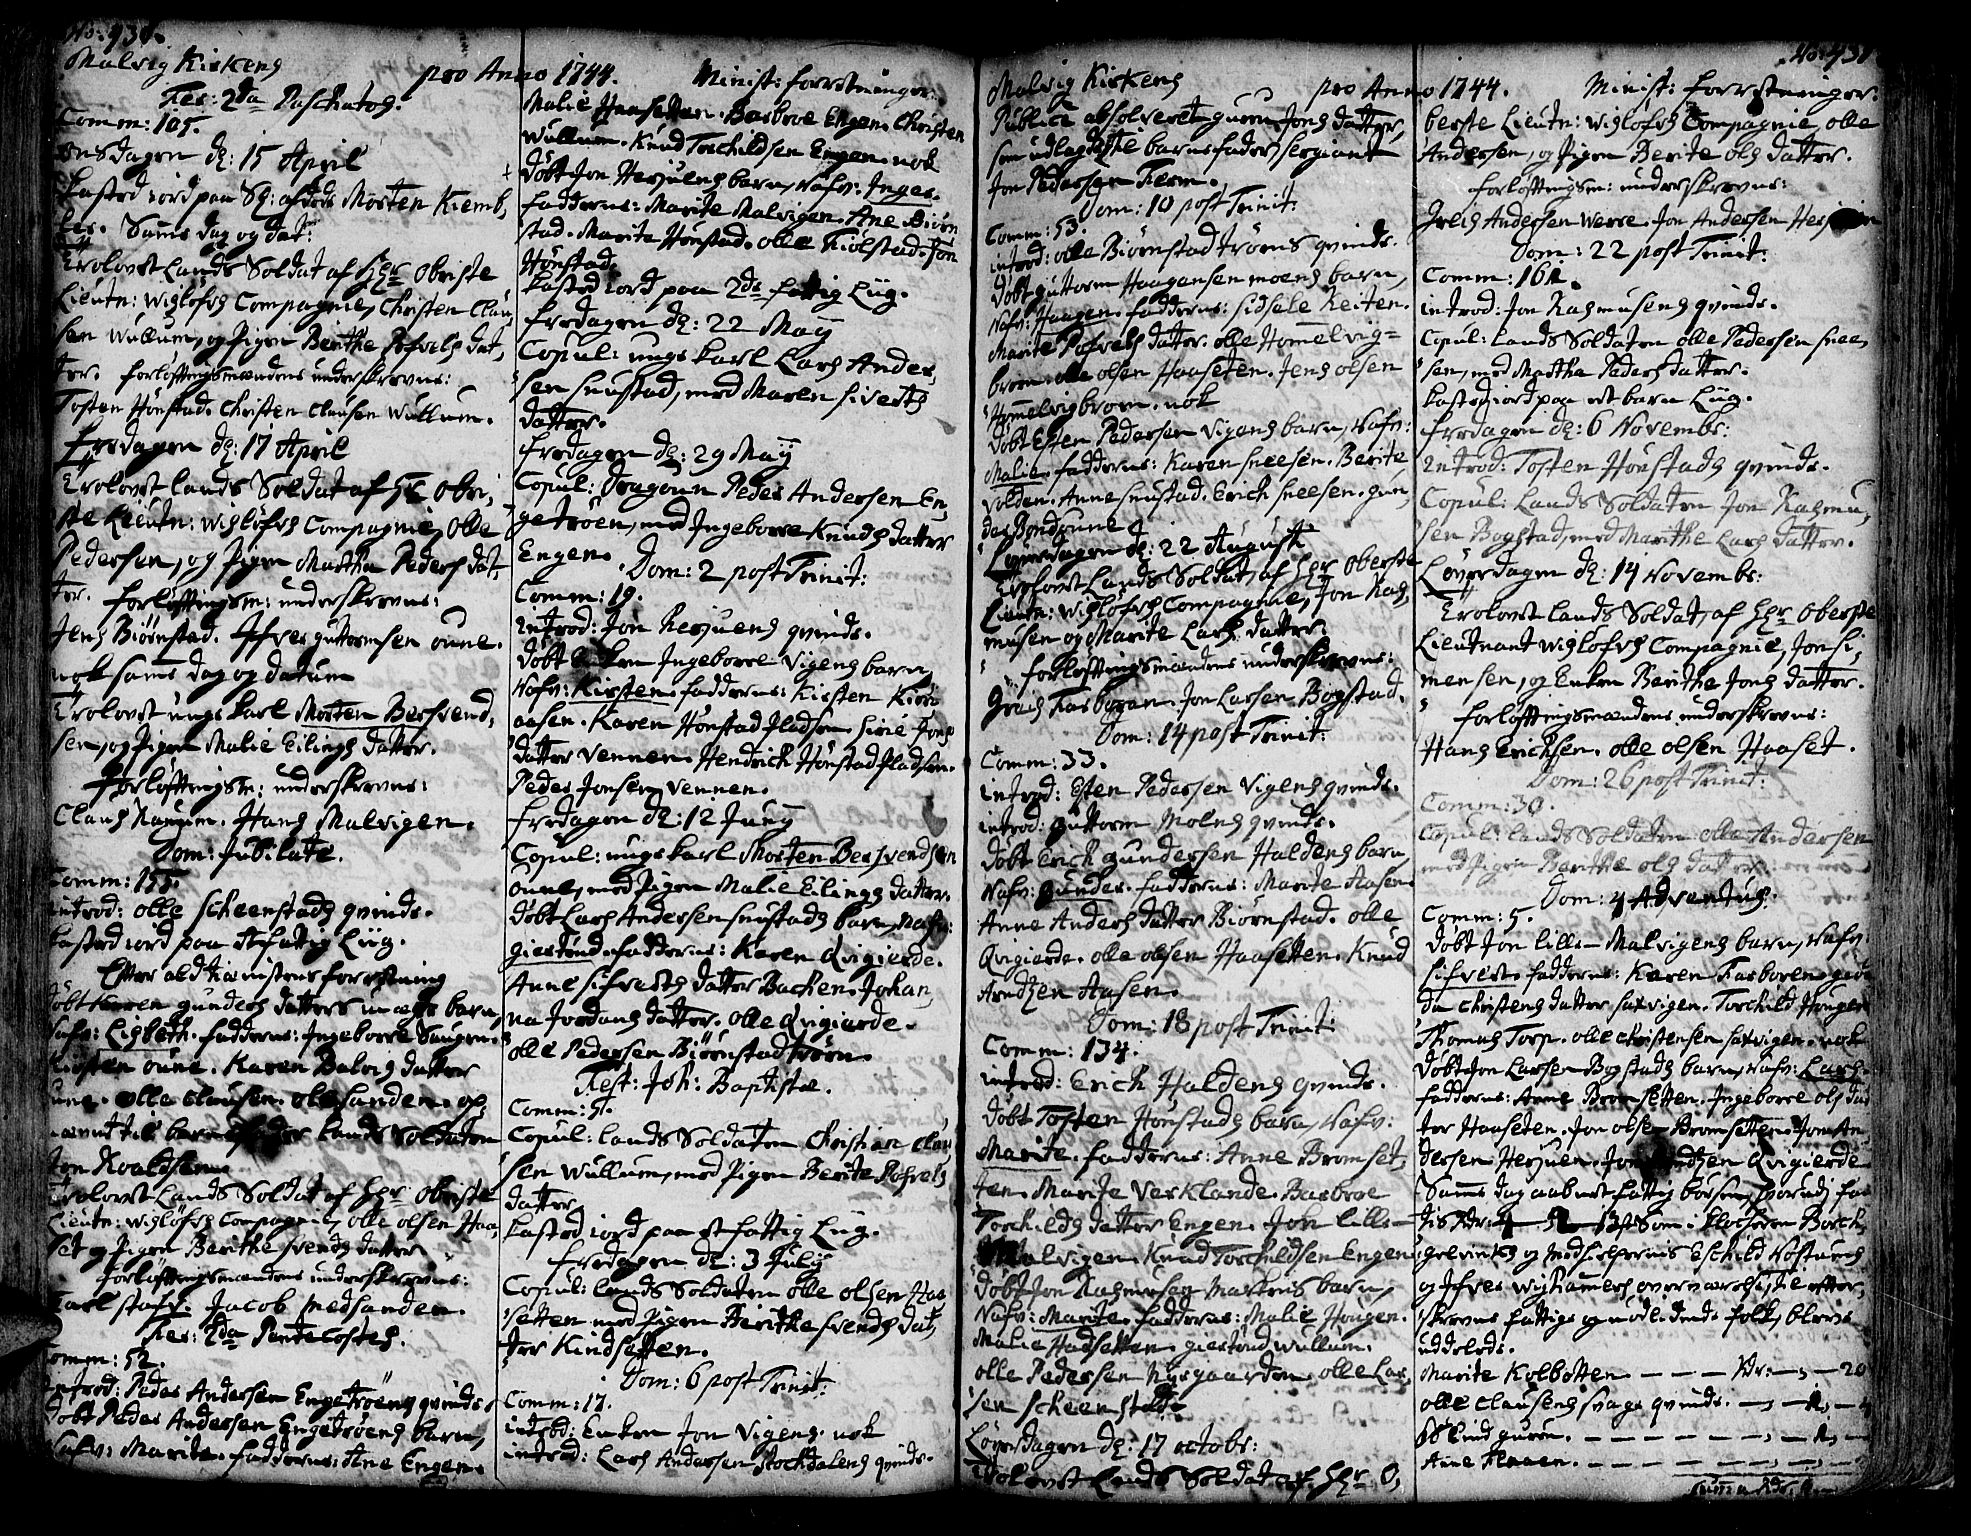 No: 430.
Malvig Kirkens pro Anno 1744. Minist: forretninger.
Fer: 2da Paschatos.
Comm: 105.
onsdagen d: 15 April
kasted iord paa Sl: afdøde Morten Kiemb,
ker. Samme dag og dat:
Trolovet Lands Soldat af Hr Obriste
Lieutn: Wiglöfs Compagnie, Christen Clau,
sen Wullum, og Pigen Berithe Pofvels dat,
ter. forløftningsmændene underskrevne:
Tosten Hönstad. Christen Clausen Wullum.
fredagen d: 17 April
Trolovet Lands Soldat af Hr Obri,
ste Lieutn: Wiglöfs Compagnie, Olle
Pedersen, og Pigen Martha Peders dat,
ter. forløftningsm: underskrevne:
Jens Biörnstad. Ifver Guttormsen oune.
nok samme dag og datum
Trolovet unge karl Morten Bersvend,
sen, og Pigen Malie Eilings datter.
forløftningsm: underskrevne:
Claus Kaugum. Hans Malvigen.
Dom: Jubilate.
Comm: 155.
introd: olle Scheenstads qvinde.
kasted iord paa et fattig Liig.
Efter all tienistens forretning
döbt Karen Gunders datters uægte barn,
Nafv: Lisbeth. fadderne: Ingeborre Saugen.
Kirsten oune. Karen Balvigs datter
oune. olle Clausen. ole Sanden. op,
nævnt til barnefader Lands Soldaten
Jon Roaldsen.
Trolovet Lands Soldat af Hr Oberste
Lieutn: Wiglöfs Compagnie, olle olsen Haa,
set og Pigen Berithe Svends datter
forløftningsmændene underskrevne:
Carl Stafr. Jacob Medsanden.
Fer: 2da Pentecostes.
Comm: 52.
introd: Peder Andersen Engetröens qvinde.
döbt Peder Andersen Engetröens barn,
Nafv: Marite. fadderne: Ane Engen.
Malie Haasetten. Barbroe Engen. Christen
Wullum. Knud Torchildsen Engen. nok
döbt Jon Herjuens barn, Nafv: Inger.
fadderne: Marite Malvigen. Ane Biörn
stad. Marite Hönstad. olle Fiölstad. Jon
Hönstad.
kasted iord paa 2de fattig Liig.
fredagen d: 22 May
Copul: unge karl Lars Ander,
sen Snustad, med Maren Siverts
datter.
fredagen d: 29 May
Copul: Dragoun Peder Andersen En,
getröen, med Ingeborre Knuds datter
Engen.
Dom: 2 post Trinit:
Comm: 19.
introd: Jon Herjuens qvinde.
döbt Enken Ingeborre Vigens barn,
Nafv: Kirsten. fadderne: Kirsten Kiörs
aasen. Karen Hönstad Pladsen. Sirie Jons
datter Vennen. Hendrich Hönstad Pladsen.
Peder Jonsen Vennen.
fredagen d: 12 Juny
Copul: unge karl Morten Bersvendsen
oune, med Pigen Malie Eilings datter.
döbt Lars Andersen Snustads barn, Nafv:
Giertrud. fadderne: Karen Qvigierde.
Anne Sifverts datter Bachen. Johan,
na Jordans datter. olle Qvigierde.
olle Pedersen Biörnstadtröen.
Fest: Joh: Baptistæ.
Comm: 5.
Copul: Lands Soldaten Christian Clau
sen Wullum, med Pigen Berite Pofvels
datter.
kasted iord paa et fattig Liig.
fredagen d: 3 July
Copul: Lands Soldaten olle olsen Haa
setten med Pigen Berithe Svends dat,
ter Kindsetten.
Dom: 6 post Trinit:
Comm: 17.
introd: Enken Jon Vigens. nok
introd: Lars Andersen Stockdalens qvinde.
No: 431
Malvig Kirkens pro Anno 1744. Minist: forretninger.
Publice absolveret Guren Jons datter,
som udlagde til barnefader Sergiant
Jon Pedersen Ferm.
Dom: 10 post Trinit:
Comm: 53.
introd: olle Biörnstadtröens qvinde.
döbt Guttorm Haagensen Moens barn,
Nafv: Haagen. fadderne: Sidsele Reiten.
Marite Pofvels datter. olle Hommelvig-
broen. olle olsen Haaseten. Jens olsen
Hommelvigbroen. nok
döbt Esten Pedersen Vigens barn, Nafv:
Malie. fadderne: Karen Sneesen. Berite
Volden. Anne Snustad. Erich Sneesen. Gun,
der Bondoune
Löverdagen d: 22 August
Trolovet Lands Soldat, af Hr Oberste
Lieutn: Wiglöfs Compagnie, Jon Ras,
musen og Marite Lars datter
forløftningsmændene underskrevne:
Greis Farboren. Jon Larsen Bogstad.
Dom: 14 post Trinit:
Comm: 33.
introd: Esten Pedersen Vigens qvinde.
introd: Guttorm Moens qvinde.
döbt Erich Gundersen Haldens barn,
Nafv: Gunder. fadderne: Marite Aasen.
Anne Anders datter Biörnstad. olle
Qvigierde. olle olsen Haasetten. Knud
Arndzen Aasen.
Dom: 18 post Trinit:
Comm: 134.
introd: Erich Haldens qvinde.
döbt Tosten Hönstads barn, Nafv:
Marite. fadderne: Anne Bromset,
ten. Marite Verklande. Barbroe
Torchilds datter Engen. Joh Lille-
Malvigen. Knud Torchildsen Engen
döbt Jon Rasmusen Martens barn,
Nafv: Marite. fadderne: Malie Hougen.
Malie Haasetten. Giertrud Wullum.
olle Pedersen Nysgaarden. olle Lar,
sen Scheenstad.
Löverdagen d: 17 octobr:
Trolovet Lands Soldat af Hr O,
berste Lieutn: Wiglöfs Compagnie, olle
Andersen, og Pigen Berite Ols datter.
forløftningsm: underskrevne:
Greis Andersen Werre. Jon Andersen Herjuen
Dom: 22 post Trinit:
Comm: 161.
introd: Jon Rasmusens qvinde.
Copul: Lands Soldaten olle Pedersen Snee,
sen, med Martha Peders datter.
kasted iord paa et barn Liig.
fredagen d: 6 Novembr:
introd: Tosten Hönstads qvinde.
Copul: Lands Soldaten Jon Rasmu,
sen Bogstad, med Marithe Lars datter.
Löverdagen d: 14 Novembr:
Trolovet Lands Soldat, af Hr Oberste
Lieutnant Wiglöfs Compagnie, Jon Si,
mensen, og Enken Berithe Jons datter.
forløftningsmændene underskrevne:
Hans Erichsen. olle olsen Haaset.
Dom: 26 post Trinit:
Comm: 30.
Copul: Lands Soldaten olle Andersen
med Pigen Berithe Ols datter.
Dom: 4 Adventus.
Comm: 5.
döbt Jon Lille-Malvigens barn, Nafv:
Sifvert. fadderne: Karen Farboren.
da Christens datter Saxvigen. Torchild Hougen
Thomas Torp. olle Christensen Saxvigen. nok
döbt Jon Larsen Bogstads barn, Nafv: Lars.
fadderne: Anne Bromsetten. Ingeborre Ols dat
ter Haaseten. Jon olsen Bromsetten. Jon An
dersen Herjuen. Jon Arndzen Qvigierde
Samme dag aabnet fattig bössen, hvorudj fan
tis Rdr: 13 s: som i klocheren
og Medhielpernis Eschild Nostuens
og Ifver Wighammers overværelse, efter,
skrevne fattige og nödlidende folk, blev
uddeelede.
Marite Kolbotten. — — — Rdr: —, —20
olle Clausens Svage qvinde. —, —
Blind Guren. — — — — — —, —
Anne Flaaen. — — — — —
Summa Rdr.